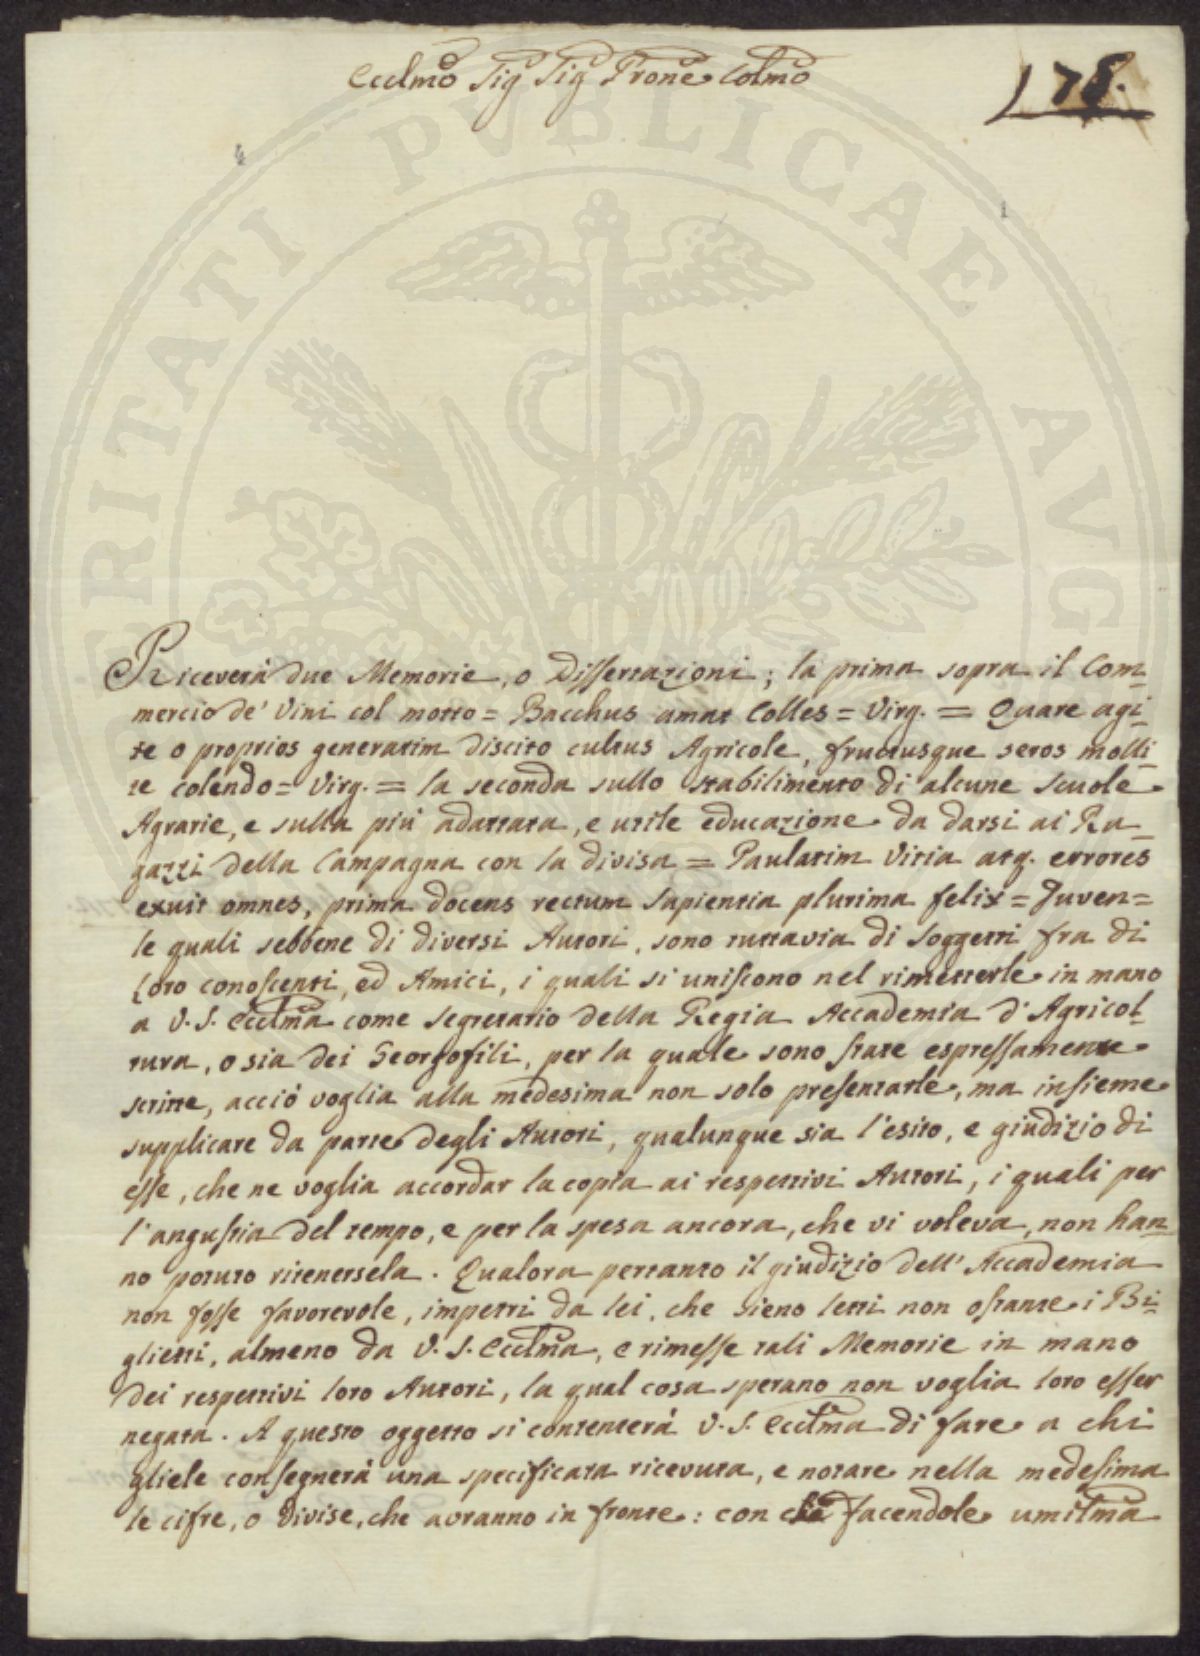 Ecclmo Sig Sig Prone Colmo
178.
Riceverà due Memorie, o Dissertazioni; la prima sopra il Com=
mercio de' Vini col motto = Bacchus amat Colles = Virg. = Quare agi=
te o proprios generatim discito cultus Agricole, fructusque feros molli=
te colendo = Virg. = la seconda sullo stabilimento di alcune scuole
Agrarie, e sulla più adattata, e utile educazione da darsi ai Ra=
gazzi della Campagna con la divisa = Paulatim vitia atq. errores
exuit omnes, prima docens rectum sapientia plurima felix = Juven =
le quali sebbene di diversi Autori, sono tuttavia di soggetti fra di
loro conoscenti, ed Amici, i quali si uniscono nel rimetterle in mano
a V. S. Ecclma come Segretario della Regia Accademia d'Agricol=
tura, o sia dei Georgofili, per la quale sono state espressamente
scritte, acciò voglia alla medesima non solo presentarle, ma insieme
supplicare da parte degli Autori, qualunque sia l'esito, e giudizio di
esse, che ne voglia accordar la copia ai respettivi Autori, i quali per
l'angustia del tempo, e per la spesa ancora, che vi voleva, non han=
no potuto ritenersela. Qualora pertanto il giudizio dell'Accademia
non fosse favorevole, impetri da lei, che sieno letti non ostante i Bi=
glietti, almeno da V. S. Ecclma, e rimesse tali Memorie in mano
dei respettivi loro Autori, la qual cosa sperano non voglia loro esser
negata. A questo oggetto si contenterà V. S. Ecclma di fare a chi
gliele consegnerà una specificata ricevuta, e notare nella medesima
le cifre, o divise, che avranno in fronte: con che facendole umilma
PROSPERITATI PUBLICAE AUG